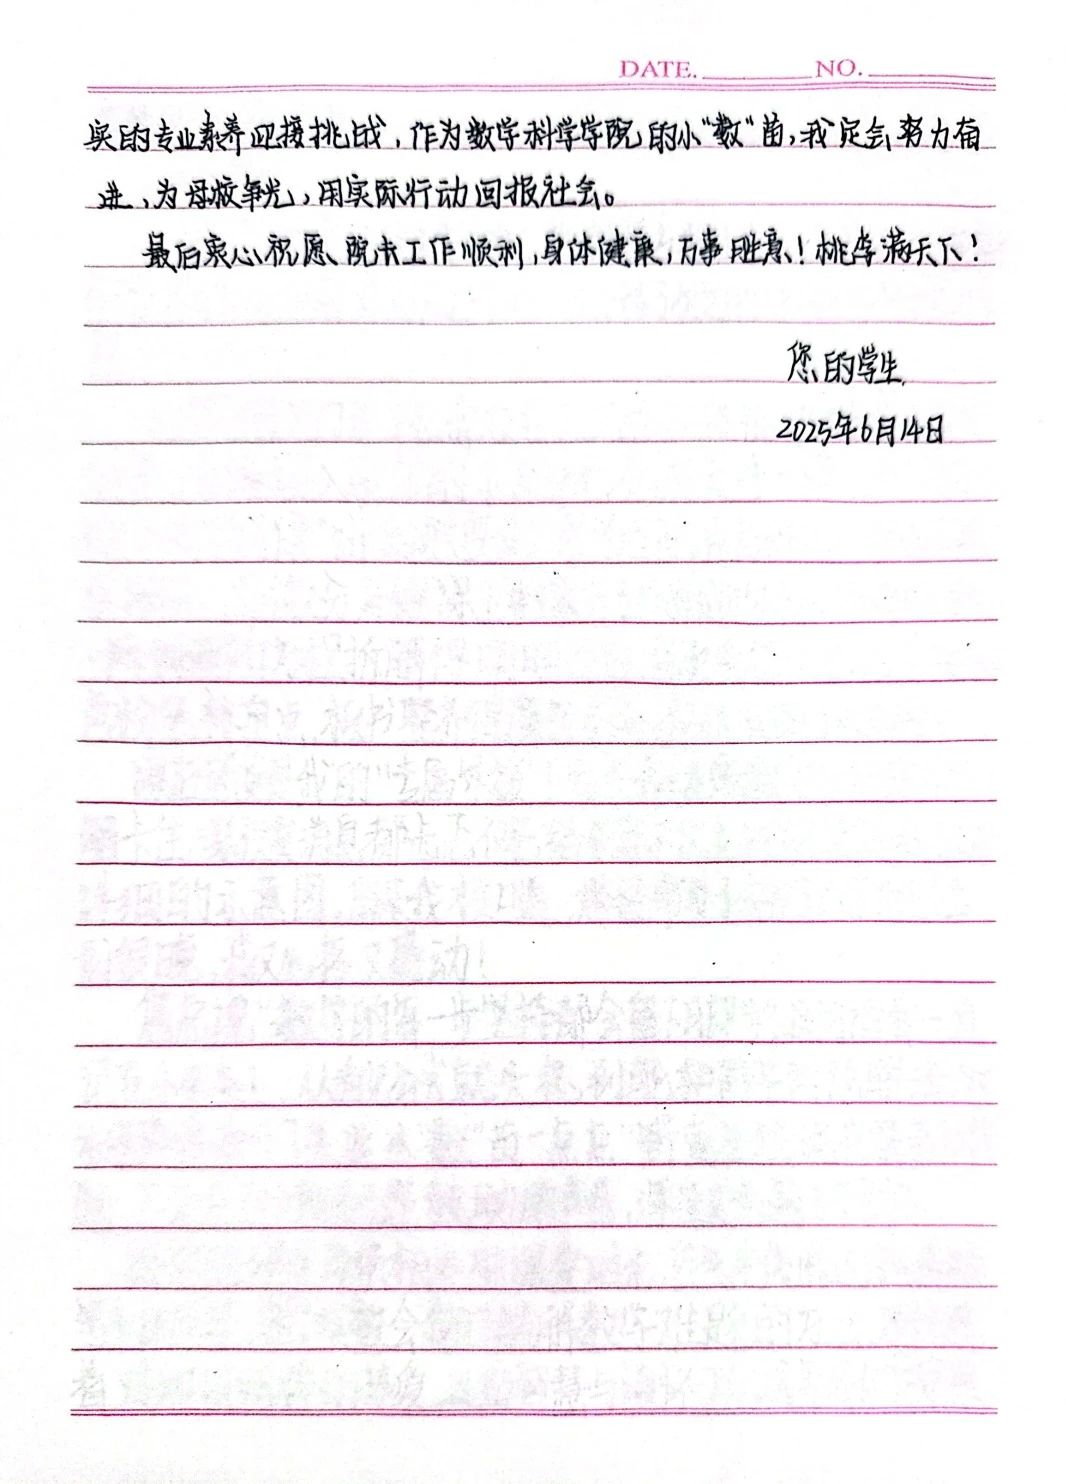 DATE. NO.
实的专业素养迎接挑战,作为数学科学学院的小“数”苗,我定会努力奋
进,为母校争光,用实际行动回报社会。
最后衷心祝愿院未工作顺利,身体健康,万事胜意!桃李满天下!
您的学生
2025年6月14日